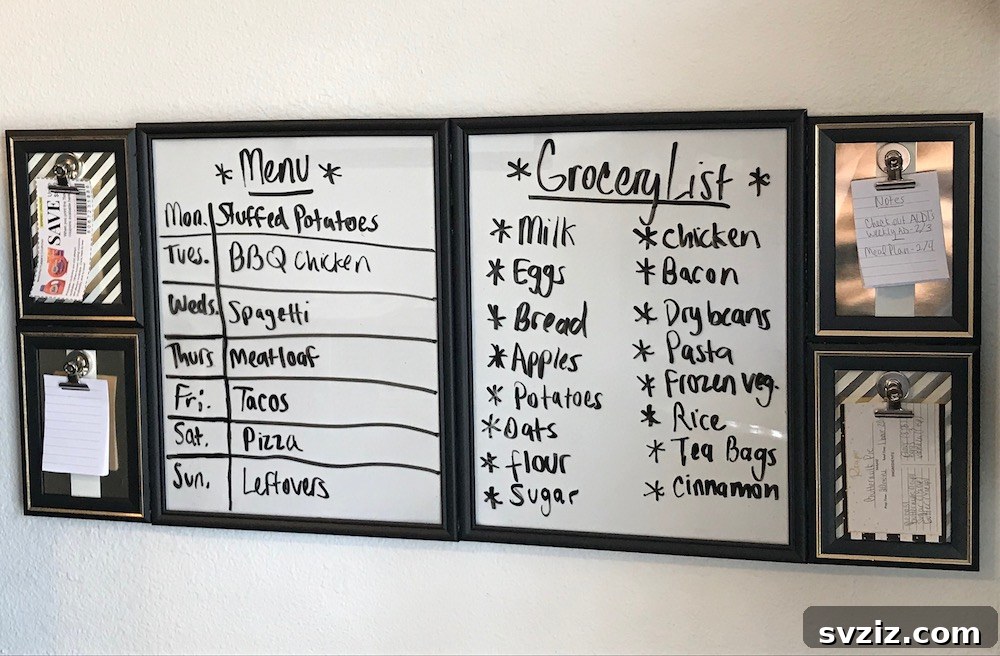 SAVE
* Menu *
Mon. Stuffed Potatoes
Tues. BBQ Chicken
Weds. Spagetti
Thurs Meatloaf
Fri. Tacos
Sat. Pizza
Sun. Leftovers
* Grocery List *
* Milk
* Eggs
* Bread
* Apples
* Potatoes
* Oats
* flour
* Sugar
* chicken
* Bacon
* Dry beans
* Pasta
* Frozen veg.
* Rice
* Tea Bags
* Cinnamon
Notes
Check out ALDI's
Weekly Ad - 2/3
Meal Plan - 2/4
svziz.com